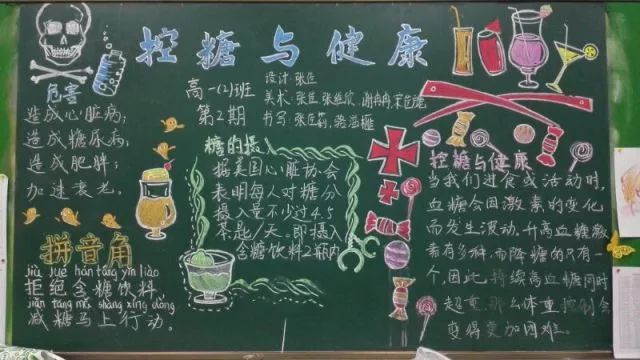 控糖与健康
高一(2)班
第2期
设计 张臣
美术:张臣 张
书写:张臣
危害
造成心脏病;
造成糖尿病;
造成肥胖;
加速衰老。
糖的摄入
据美国心脏协会
表明每人对糖分
摄入量不少过4.5
茶匙/天。即摄入
含糖饮料2瓶内
控糖与健康
当我们进食或活动时,
血糖会因激素的变化
而发生波动,升高血糖激
素有多种,而降糖的只有
一个,因此,持续高血糖同时
超重,那么体重控制会
变得更加困难。
拼音角
jù jué hán táng yǐn liào
拒绝含糖饮料
jiǎn táng mǎ shàng xíng dòng
减糖马上行动。